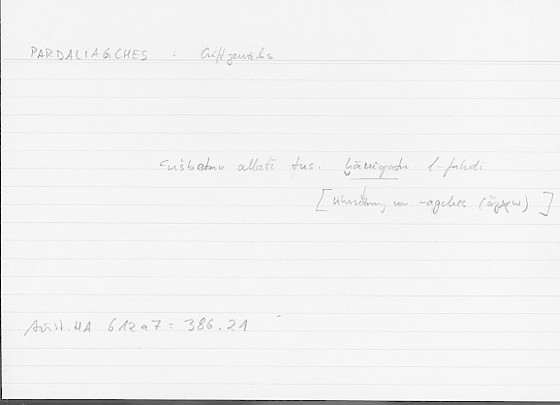 PARDALIAGCHES : Giftgewächs
ʿušbatun allatī tus. ḫāniqatu l-fahdi
[Übersetzung von -agches (ἄγχω)]
Arist. HA 612a7 = 386.21